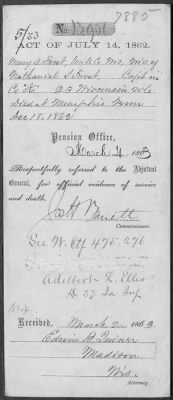 7885
5/23
No.
ACT OF JULY 14, 1862.
Mary A Frost, Uncle &c Wis, Wid of
Nathaniel S Frost. Capt in
Co "K" 23 Wisconsin Vols
died at Memphis Tenn
Dec 18, 1862
Pension Office,
March 4, 1863
Respectfully referred to the Adjutant
General, for official evidence of service
and death.
J H Barrett
Commissioner.
See W. Ctf 475.276
Adelbert L. Ellis
33 Ia Inf
Received, March 2 1863.
Edwin
Madison
Wis.
Attorney.